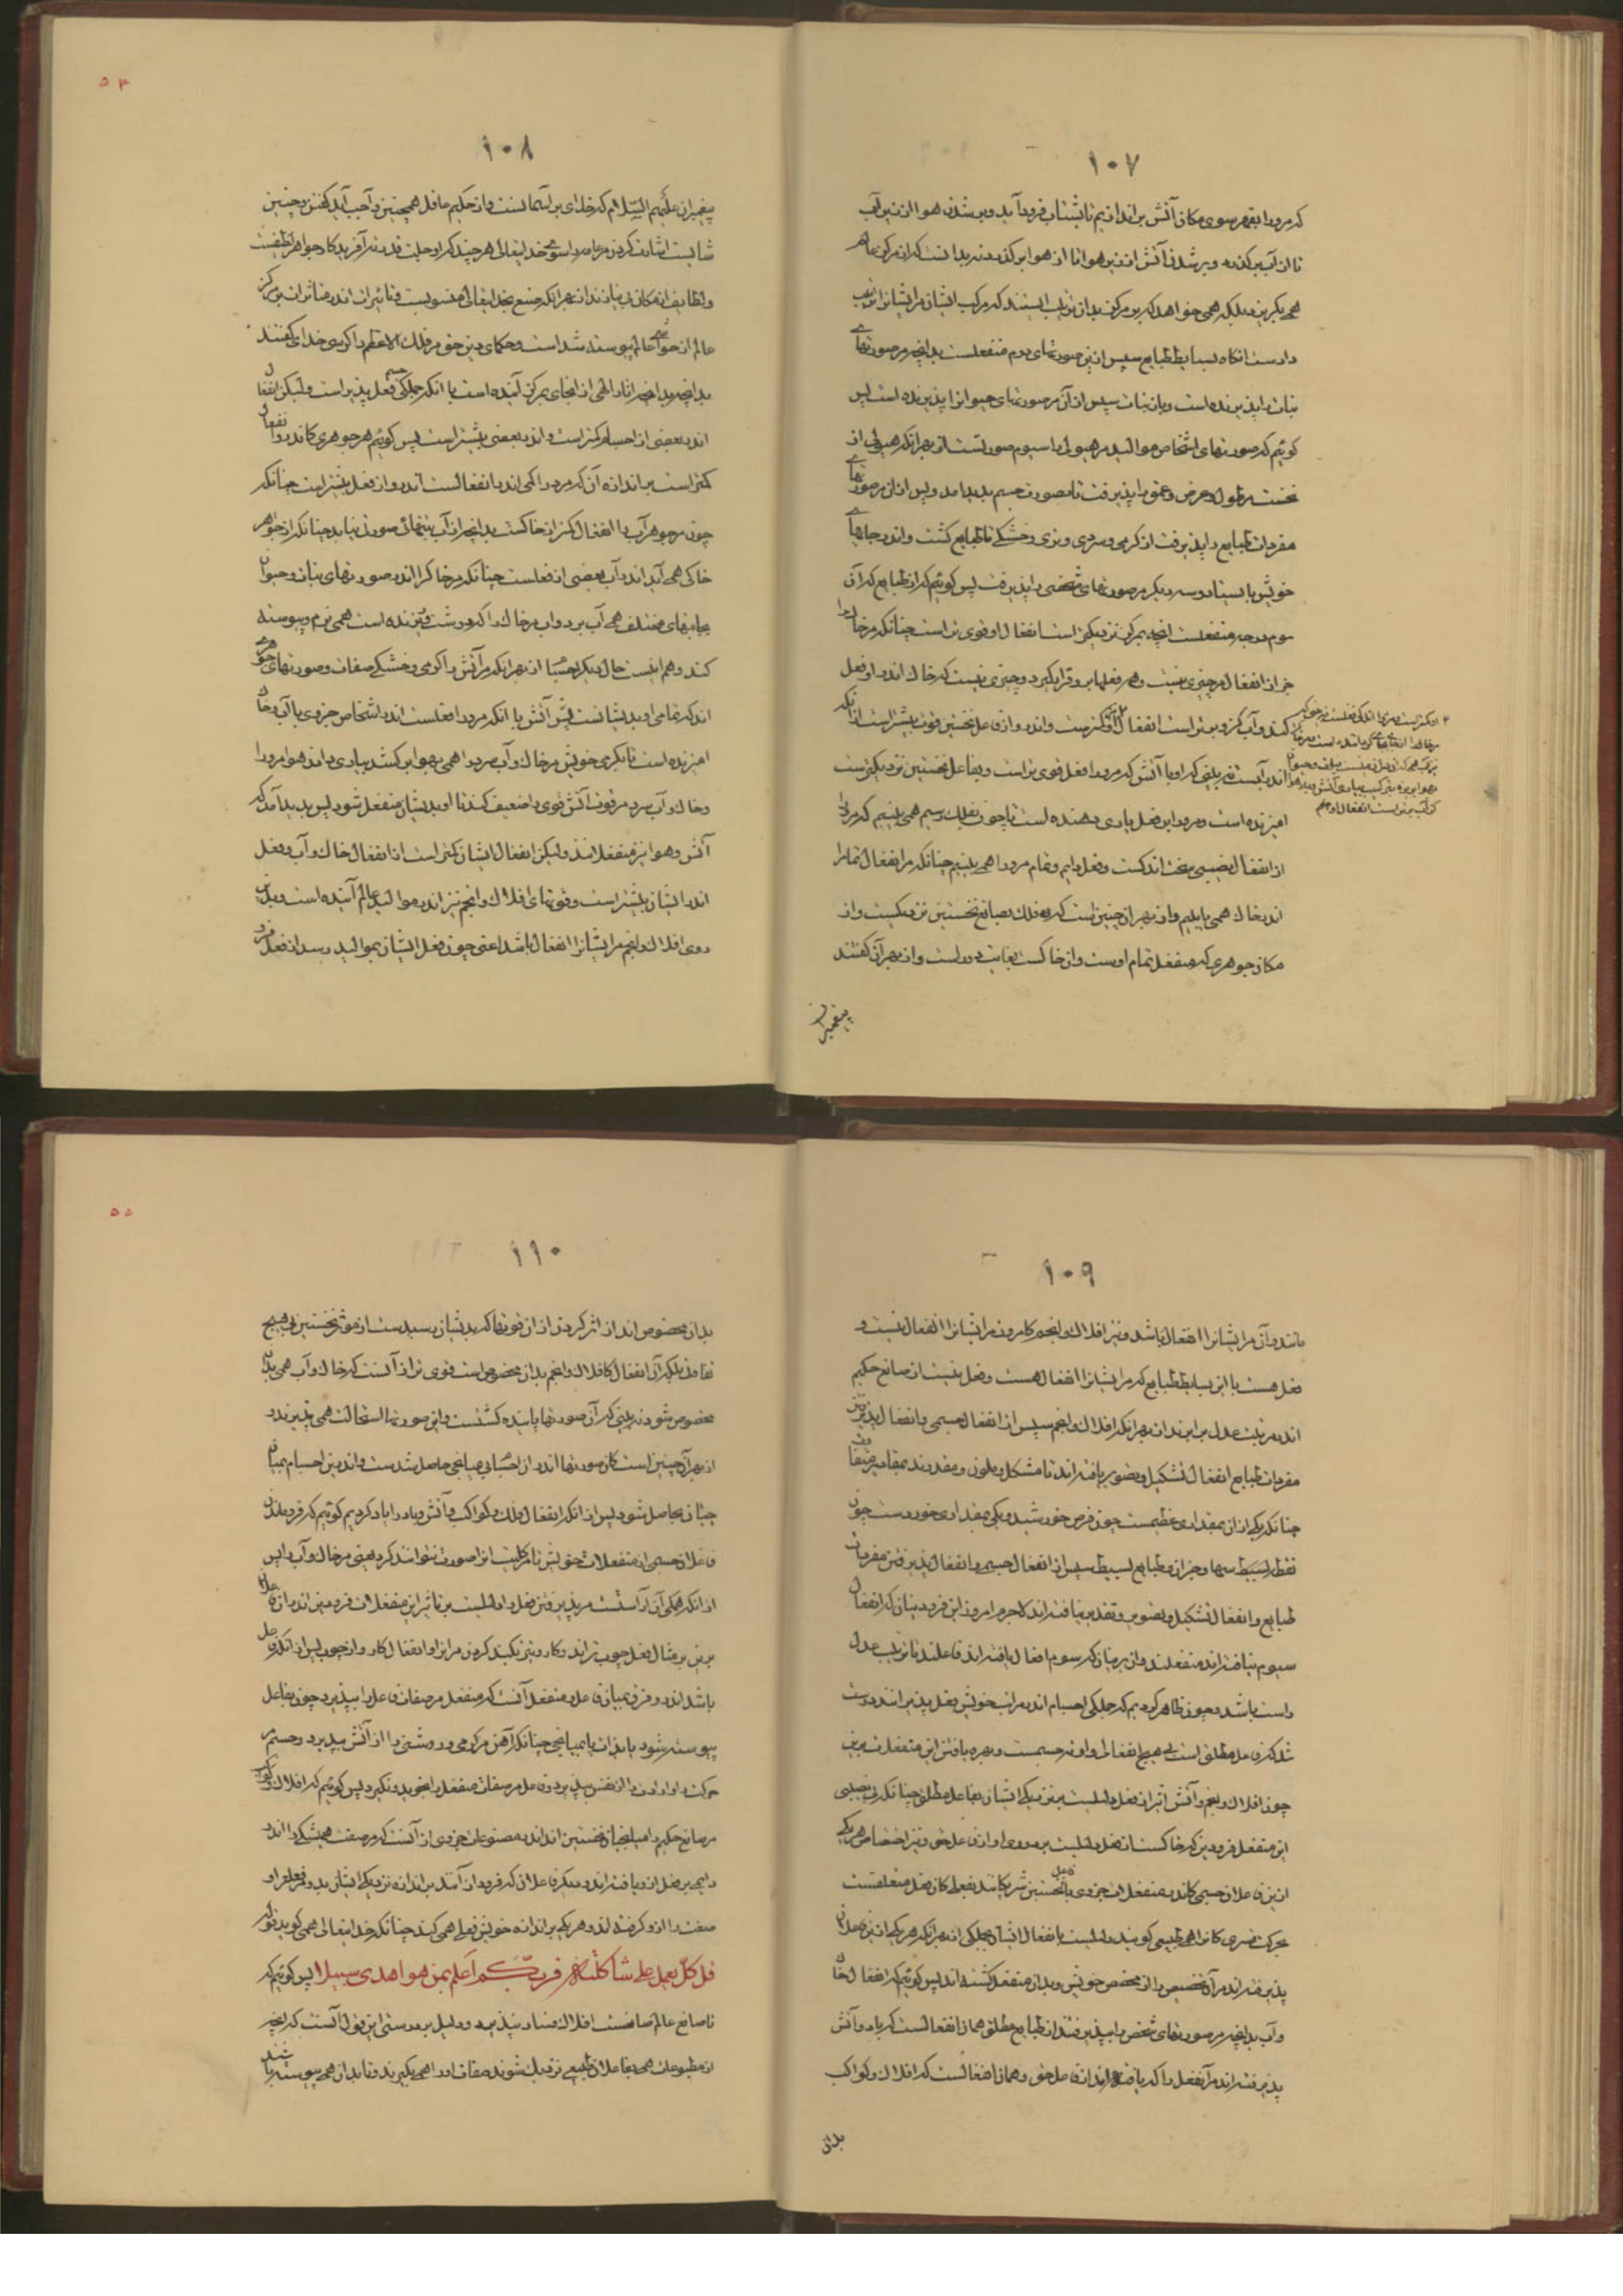 ۱۰۷
که مرورا بقهر سوی مکان آتش براندازیم تا بشتاب فرود آید و برشدن هوا از زیر آب
تا از آب برگذرد و برشدن آتش اندر هوا تا از هوا برگذرد نه بدانست که از مرکز عالم
همی بگریزد بلکه همی خواهد که بر مرکز بدان ترتیب بایستد که مرکب ایشان مر ایشانرا ترتیب
دادست آنگاه بسایط طبایع سپس ازین صورتهای دوم منفعلست بدانچه مر صورتهای
نبات را پذیرنده است و باز نبات سپس از آن مر صورتهای حیوانرا پذیرنده است پس
گوئیم که صورتهای اشخاص موالید مر هیولی را سیوم صورتست از بهر آنکه هیولی از
نخست مر طول و عرض و عمق را پذیرفت تا بصورت جسم پدید آمد و پس از آن مر صورتهای
مفردات طبایع را پذیرفت از گرمی و سردی و تری و خشکی تا طبایع گشت و اندر جاهای
خویش بایستاد و سه دیگر مر صورتهای شخصی را پذیرفت پس گوئیم که از طبایع که آن
سوم درجه منفعلست آنچه بمرکز نزدیکتر است انفعال او قوی تر است چنانکه مر خاک را
جز از انفعال چیزی نیست و هر فعلها برو قرار گیرد و چیزی نیست که خاک اندر او فعل
کند و آب کزو برتر است انفعال او کمترست و اندر و از فاعل نخستین قوت بیشتر است از آنکه
اندر آبست نه بینی که او با آتش که مرورا فعل قوی تر است و بفاعل نخستین نزدیکترست
آمیزنده است و مرورا بر فعل یاری دهنده است تا چون بفلک رسیم همی بینیم که مرورا
از انفعال نصیبی سخت اندکست و فعل دایم و تمام مرورا همی بینیم چنانکه مر انفعال تمام را
اندر خاک همی یابیم و از بهر آن چنین است که فلک بصانع نخستین نزدیکست و از
مکان جوهری که منفعل تمام اوست و آن خاکست بغایت دورست و از بهر آن گفتند
پیغمبران
۵۴
۱۰۸
پیغمبران علیهم السلام که خدای بر آسمانست و از حکیم عاقل همچنین واجب آید گفتن و چنین
شایست اشارت کردن مر عامه را سوی خدایتعالی هرچند که او جلت قدرته آفریدگار جواهر لطیفست
عالم از حواشی عالم پیوسته شد است و حکمای دین حق مر فلک الاعظم را کرسی خدای گفتند
اندر بعضی از اجسام کمتر است و اندر بعضی بیشتر است پس گوئیم هر جوهری کاندرو انفعال
کمتر است بر اندازه آن کمی مرورا اندر انفعالست اندرو از فعل بیشتر است چنانکه
چون مر جوهر آب را انفعال کمتر از خاکست بدانچه از آب بتنهائی صورت نیاید چنانکه از جوهر
خاکی همی آید اندر آب بعضی از فعلست چنانکه مر خاک را اندر صورتهای نبات و حیوان
بجایهای مختلف همی آب برد و آب مر خاک را که درشت و گریزنده است همی نرم و پیوسته
کند و هم اینست حال دیگر اجسام از بهر آنکه مر آتش را گرمی و خشکی صفات و صورتهای جوهری
اند که تمامی او بدیشانست پس آتش با آنکه مرورا فعلست اندر اشخاص جزوی با آب و خاک
آمیزنده است تا بگرمی خویش مر خاک و آب سرد را همی بهوا برکشد بیاری دادن هوا مرورا
و خاک و آب سرد مر قوت آتش قوی را ضعیف کند تا او بدیشان منفعل شود پس پدید آمد که
آتش و هوا نیز منفعلانند ولیکن انفعال ایشان کمتر است از انفعال خاک و آب و فعل
اندر ایشان بیشتر است و قوتهای افلاک و انجم نیز اندر موالید عالم آینده است و بدین
روی افلاک و انجم مر ایشانرا انفعال باشد اعنی چون فعل ایشان بموالید رسد از فعل فرو
۱۰۹
مانند و آن مر ایشانرا انفعال باشد و نیز افلاک و انجم کامروز مر ایشانرا انفعال نیست و
فعل هست با این بسایط طبایع که مر ایشانرا انفعال هست و فعل نیست از صانع حکیم
اندر مرتبت عدل برابرند از بهر آنکه افلاک و انجم سپس از انفعال جسمی و انفعال پذیرفتن
مفردات طبایع انفعال تشکیل و تصویر یافته اند تا مشکل و ملون و مقدرند بمقادیر متفاوت
چنانکه یکی از آن بمقداری عظیمست چون قرص خورشید و یکی بمقداری خوردست چون
نقطه بسیط سها و جز آن و طبایع بسیط سپس از انفعال جسم و انفعال پذیرفتن مفردات
طبایع و انفعال تشکیل و تصویر و تقدیر نیافته اند لاجرم امروز این فرودینان که انفعال
سیوم نیافته اند منفعلند و آن برینان که سوم انفعال یافته اند فاعلند تا ترتیب عدل
راست باشد و چون ظاهر کردیم که جملگی اجسام اندر مراتب خویش فعل پذیرانند درست
شد که فاعل مطلق است بی هیچ انفعالی و او نه جسمست و بهره یافتن این منفعلات برین
چون افلاک و نجم و آتش اثیر از فعل دلیلست بر نزدیکی ایشان بفاعل مطلق چنانکه بی نصیبی
این منفعل فرودین که خاکست از فعل دلیلست بر دوری او از فاعل حق و نیز اختصاص هر یکی
ازین فاعلان جسمی کاندر منفعلات جزوی با فاعل نخستین شریکانند بفعلی کان فعل متعلقست
بحرکت قسری کانرا همی طبیعی گویند دلیلست بانفعال ایشان جملگی از بهر آنکه هر یکی ازین فاعلان
پذیرفته اند مر آن تخصیص را از مخصص خویش و بدان منفعل گشته اند پس گوئیم که انفعال خاک
و آب بدانچه مر صورتهای شخصی را بپذیرفتند از طبایع مطلق همان انفعالست که باد و آتش
پذیرفته اند مر آن فعل را که یافته اند از فاعل حق و همان انفعالست که افلاک و کواکب
بدان
۵۵
۱۱۰
بدان مخصوص اند از اثر کردن از آن قوتها که بدیشان رسیدست از مؤثر نخستین بی هیچ
تفاوت بلکه آن انفعال کافلاک و انجم بدان مخصوص است قوی تر از آنست که خاک و آب همی بدان
مخصوص شود نه بینی که آن صورتها پاینده گشتست و این صورتها استحالت همی پذیرند و
از بهر آن چنین است کان صورتها اندر آن اجسام بی میانجی حاصل شدست و اندرین اجسام بمیانجی
چنان حاصل شود پس از آنکه انفعال فلک و کواکب و آتش و باد را یاد کردیم گوئیم که فرو ماندن
فاعلان جسمی از منفعلات خویش تا مر کلیت آنرا صورت نتوانند کردن یعنی مر خاک و آب را پس
باشد اندرو فرق میان فاعل و منفعل آنست که منفعل مر صفات فاعل را بپذیرد چون بفاعل
پیوسته شود یا بذات یا بمیانجی چنانکه آهن مر گرمی و روشنی را از آتش بپذیرد و جسم مر
حرکت ارادی را از نفس بپذیرد و فاعل مر صفات منفعل را بخویشتن نگیرد پس گوئیم که افلاک و کواکب
مر صانع حکیم را میانجیان نخستین اند اندر مصنوعات جزوی از آنست که مر صفت همیشگی را اندر
صفت را ازو گرفته اند و هر یکی بر اندازه خویش فعلی همی کند چنانکه خدایتعالی همی گوید قوله
قل کل یعمل علی شاکلته فربکم اعلم بمن هو اهدی سبیلا پس گوئیم که
تا صانع عالم صانعست افلاک فساد نپذیرد و دلیل بر درستی این قول آنست که آنچه
از مطبوعات همی بفاعلان طبیعی نزدیک شوند صفات او را همی بگیرند و تا بدان همی پیوسته باشند